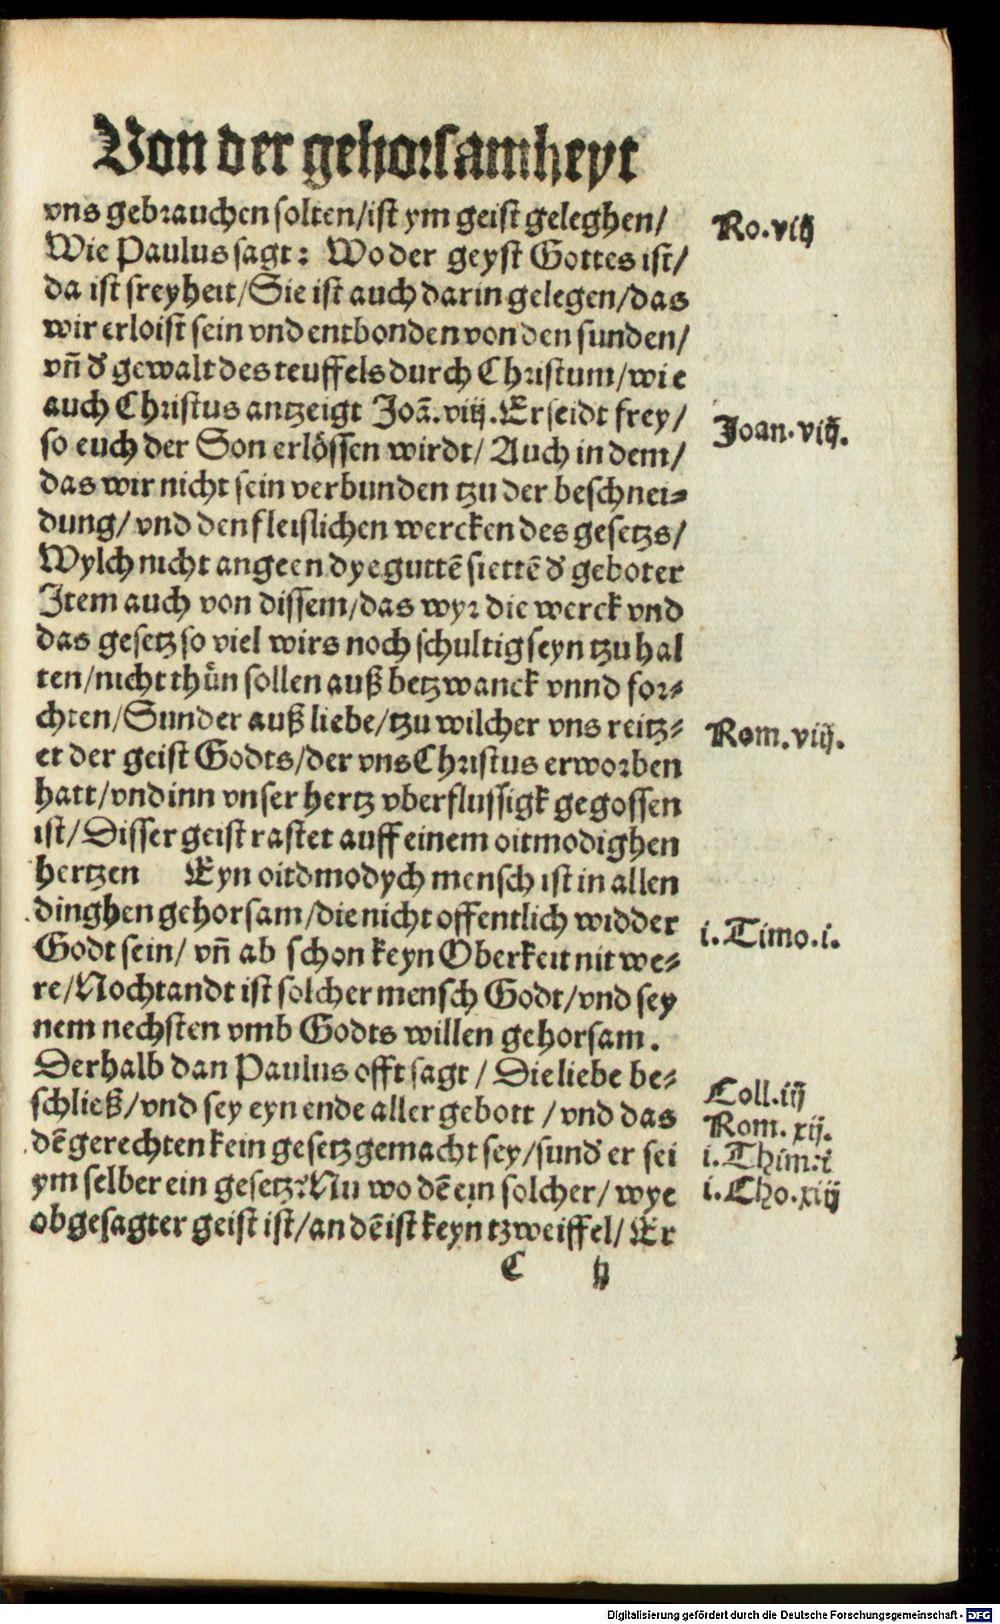 Von der gehorsamheyt
vns gebrauchen solten/ist ym geist geleghen/
Ro.viij
Wie Paulus sagt: Wo der geyst Gottes ist/
da ist freyheit/Sie ist auch darin gelegen/das
wir erloist sein vnd entbonden von den sunden/
vñ d' gewalt des teuffels durch Christum/wie
auch Christus antzeigt Joã.viij.Er seidt frey/
Joan.viij.
so euch der Son erlössen wirdt/ Auch in dem/
das wir nicht sein verbunden tzu der beschnei⸗
dung/ vnd den fleislichen wercken des gesetzs/
Wylch nicht angeen dye guttē siettē d' geboter
Item auch von dissem/das wyr die werck vnd
das gesetz so viel wirs noch schultig seyn tzu hal
ten/nicht thůn sollen auß betzwanck vnnd for⸗
chten/Sunder auß liebe/tzu wilcher vns reitz⸗
Rom.viij.
et der geist Godts/der vns Christus erworben
hatt/vnd inn vnser hertz vberflussigk gegossen
ist/Disser geist rastet auff einem oitmodighen
hertzen Eyn oitdmodych mensch ist in allen
dinghen gehorsam/die nicht offentlich widder
i.Timo.i.
Godt sein/ vñ ab schon keyn Oberkeit nit we⸗
re/Nochtandt ist solcher mensch Godt/vnd sey
nem nechsten vmb Godts willen gehorsam.
Derhalb dan Paulus offt sagt / Die liebe be⸗
Coll.iij
schließ/vnd sey eyn ende aller gebott /vnd das
Rom.xij.
dē gerechten kein gesetz gemacht sey/sund' er sei
i.Thim:i
ym selber ein gesetz:Nu wo dē ein solcher/ wye
i.Cho.xiij
obgesagter geist ist/an dē ist keyn tzweiffel/ Er
C ij
Digitalisierung gefördert durch die Deutsche Forschungsgemeinschaft - DFG